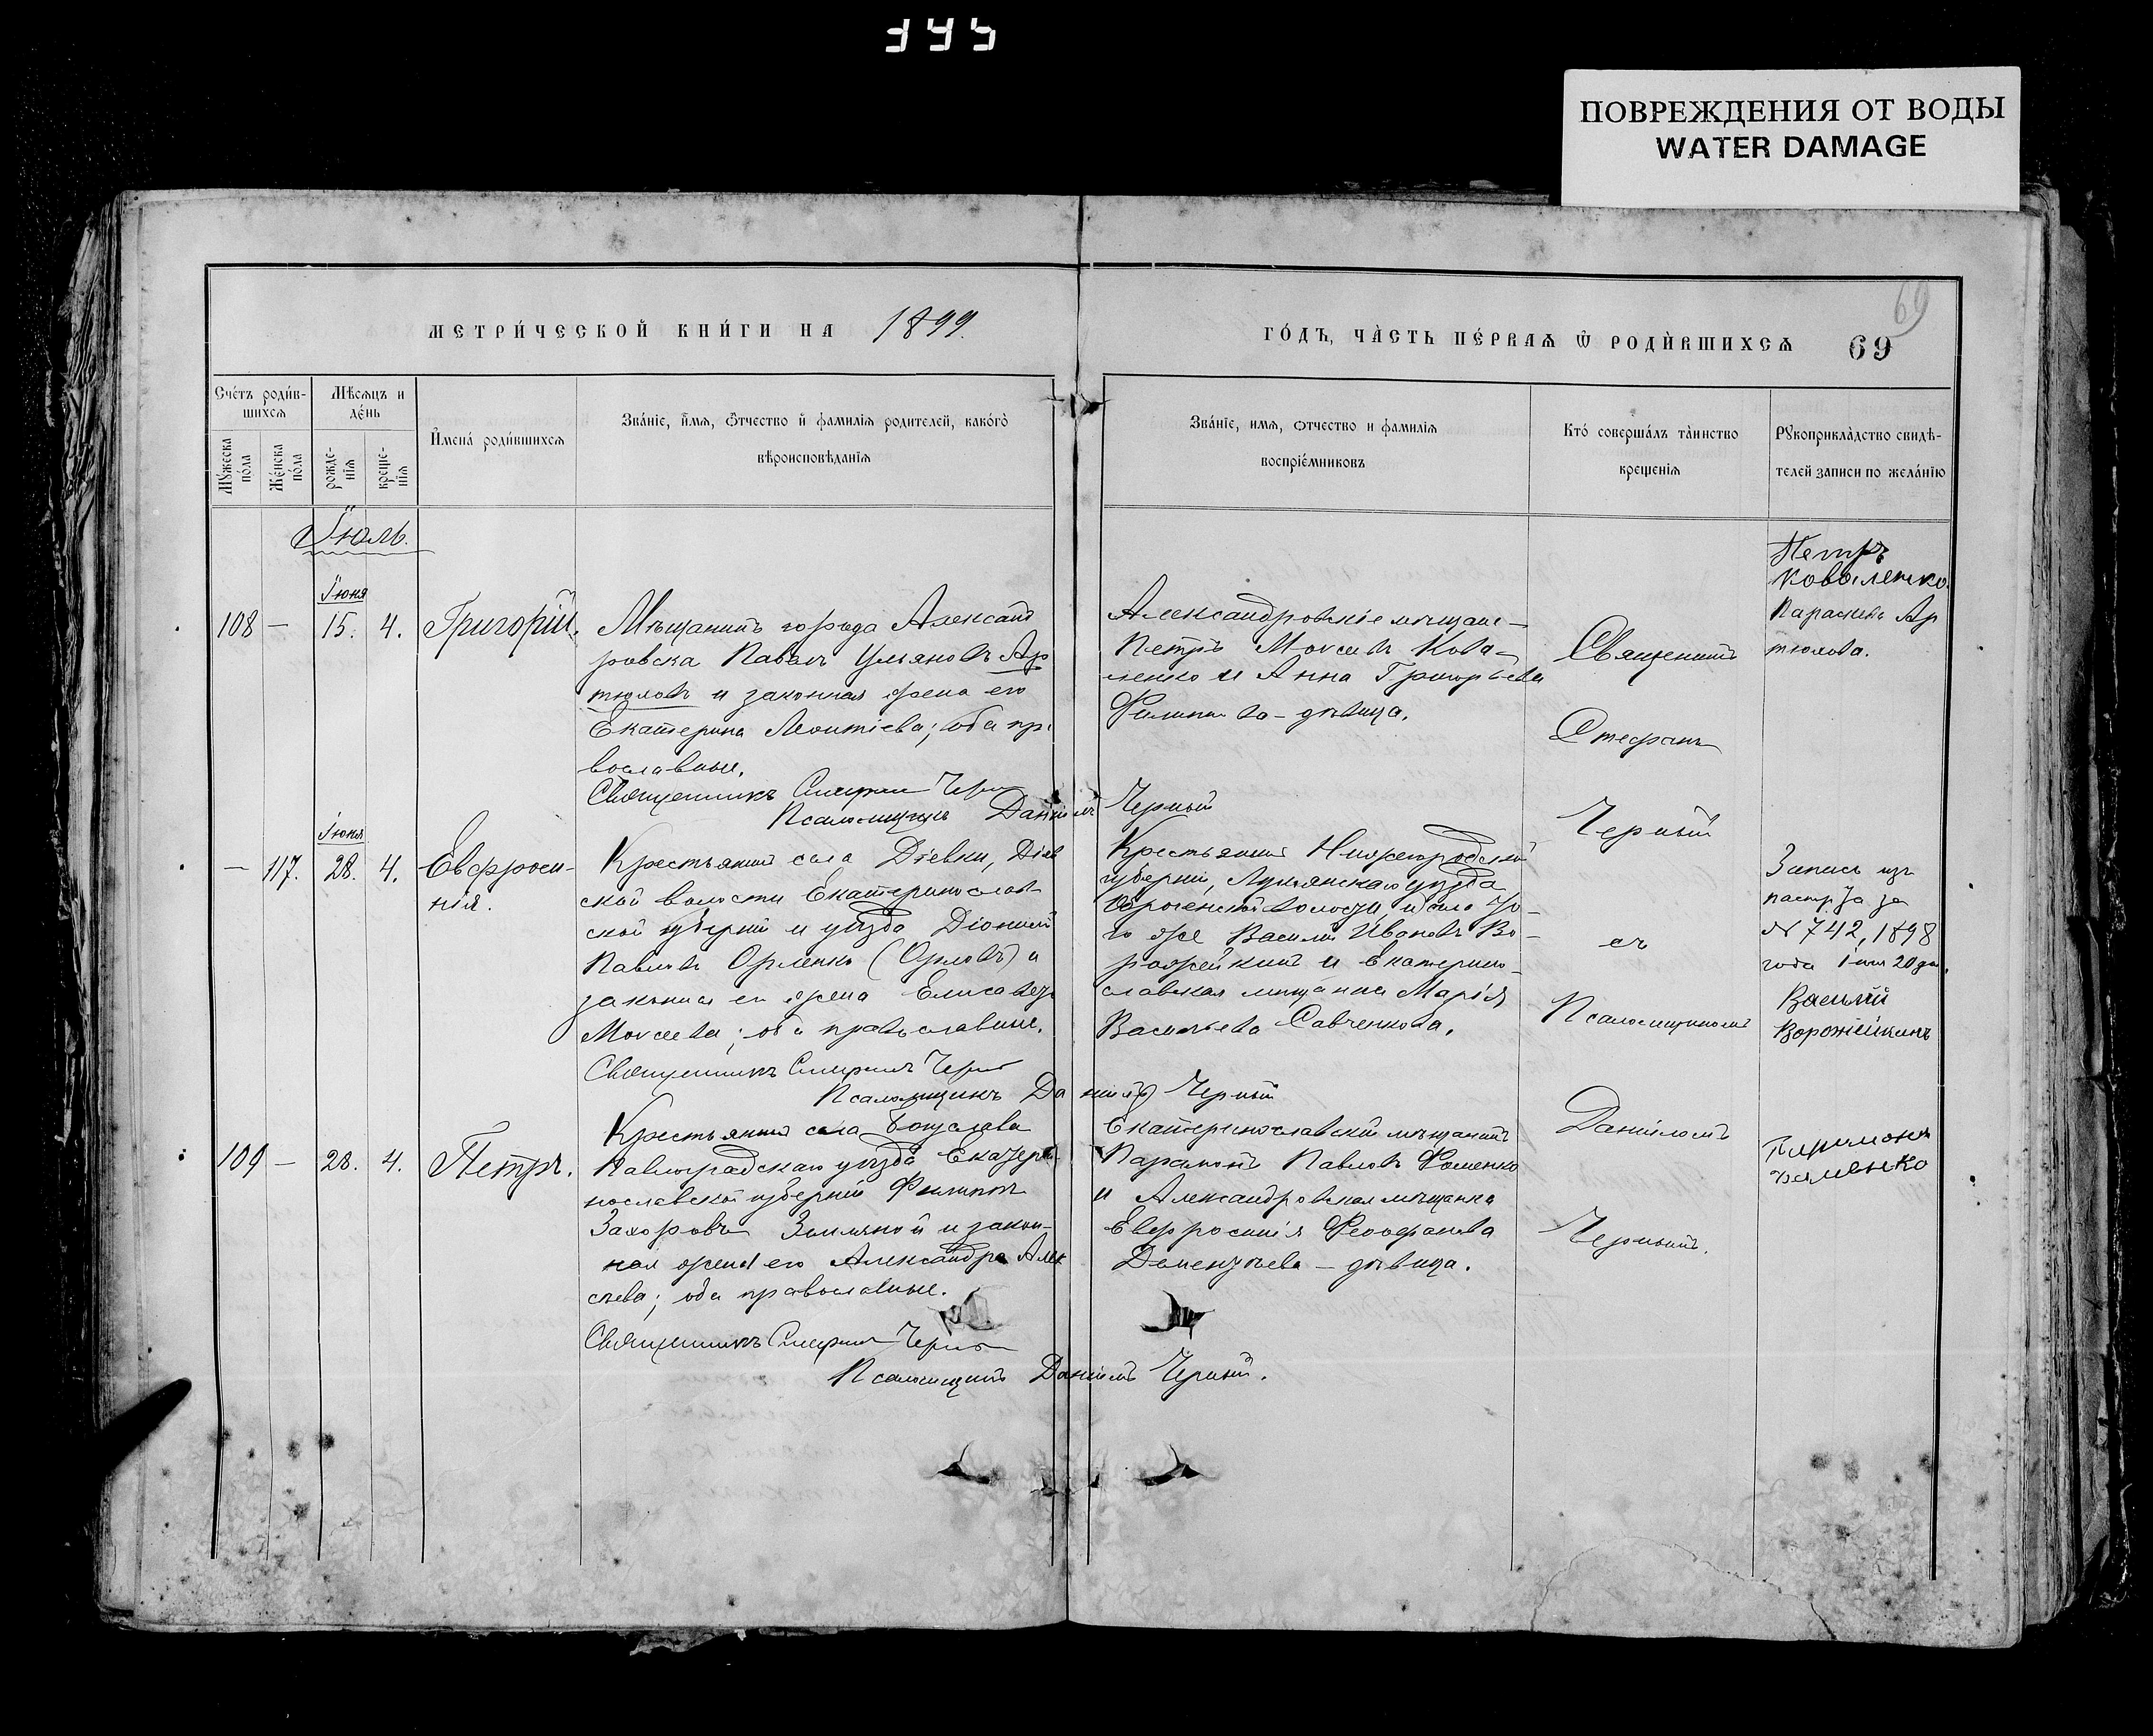 395
ПОВРЕЖДЕНИЯ ОТ ВОДЫ
WATER DAMAGE
69
МЕТРИ́ЧЕСКОЙ КНИ́ГИ НА 1899.
ГО́ДЪ, ЧА̀СТЬ ПЕ́РВАѦ Ѿ РОДИ́ВШИХСѦ 69
Сче́тъ роди́в-
шихсѧ
Мѣсѧцъ и
де́нь
Мꙋ́жеска
по́ла
Же́нска
по́ла
рожде-
нїѧ
креще-
нїѧ
И҆мена́ роди́вшихсѧ
Зва́нїе, и҆́мѧ, ѻ҆́тчество и҆ фамилїѧ родителей, како́гѡ
вѣроисповѣданїѧ
Зва́нїе, имѧ, ѻтчество и фамилїѧ
воспрїе́мниковъ
Кто́ соверша́лъ та̀инство
крещенїѧ
Рꙋкоприкла̀дство свидѣ-
телей записи по жела́нїю
Іюль.
Іюня
108 — 15. 4. Григорій.
Мѣщанинъ города Александ
ровска Павелъ Ульяновъ Ар
тюховъ и законная жена его
Екатерина Леонтіева; оба пр
вославные.
Священникъ Стефанъ Черный
Псаломщикъ Даніилъ Черный
Александровскіе мѣщане-
Петръ Моисеевъ Кова-
ленко и Анна Григорьева
дѣвица.
Священникъ
Стефанъ
Черный
Петръ
Коваленко
Параскева Ар
тюхова.
Іюня
— 117. 28. 4. Евфроси-
нія.
Крестьянинъ села Діевки, Діев
ской волости Екатеринослав
ской губерніи и уѣзда Діонисій
Павловъ Орленко (Орловъ) и
законная его жена Елисавета
Моисеева; оба православные.
Священникъ Стефанъ Черный
Псаломщикъ Даніилъ Черный
Крестьянинъ Нижегородской
губерніи, уѣзда
волости, и села то-
го же Василій Ивановъ Во-
рожейкинъ и Екатерино-
славская мѣщанка Марія
Васильева Савченкова.
съ
Псаломщикомъ
Запись изъ
за
№ 742, 1898
года 20
Василій
Ворожейкинъ
109 — 28. 4. Петръ.
Крестьянинъ села Богуслава
Павлоградскаго уѣзда Екатери
нославской губерніи Филиппъ
Захаровъ Земляной и закон-
ная жена его Александра Алек
сѣева; оба православные.
Священникъ Стефанъ Черный
Псаломщикъ Даніилъ Черный.
Екатеринославскій мѣщанинъ
Парамонъ Павловъ Фоменко
и Александровская мѣщанка
Евфросинія Феофанова
Дементьева — дѣвица.
Даніиломъ
Чернымъ.
Парамонъ
Фоменко